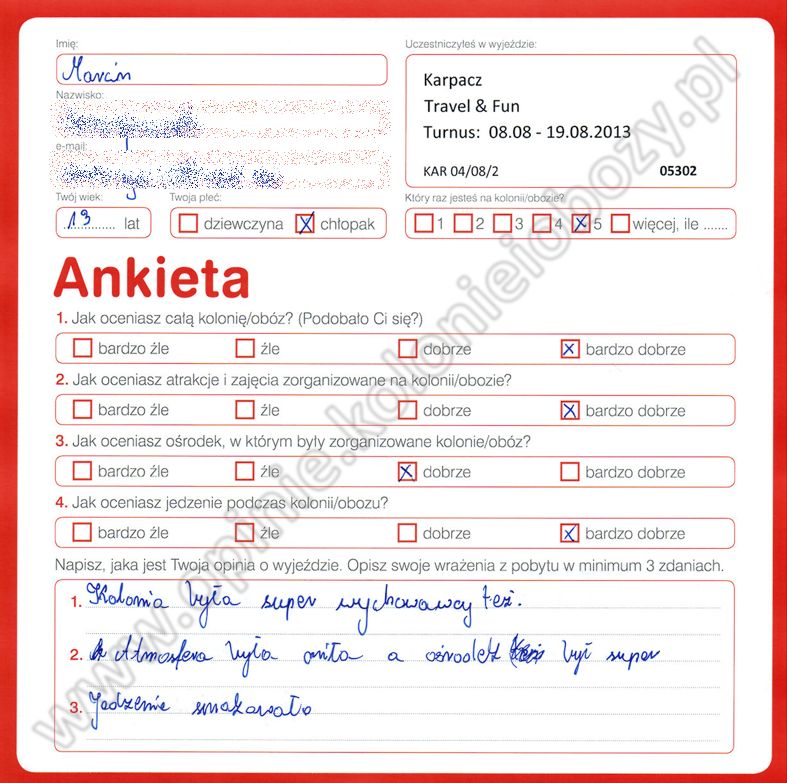 Imię:
Marcin
Nazwisko:
e-mail:
Twój wiek:
13 lat
Twoja płeć:
dziewczyna chłopak
Uczestniczyłeś w wyjeździe:
Karpacz
Travel & Fun
Turnus: 08.08 - 19.08.2013
KAR 04/08/2 05302
Który raz jesteś na kolonii/obozie?
1 2 3 4 5 więcej, ile .......
Ankieta
1. Jak oceniasz całą kolonię/obóz? (Podobało Ci się?)
bardzo źle źle dobrze bardzo dobrze
2. Jak oceniasz atrakcje i zajęcia zorganizowane na kolonii/obozie?
bardzo źle źle dobrze bardzo dobrze
3. Jak oceniasz ośrodek, w którym były zorganizowane kolonie/obóz?
bardzo źle źle dobrze bardzo dobrze
4. Jak oceniasz jedzenie podczas kolonii/obozu?
bardzo źle źle dobrze bardzo dobrze
Napisz, jaka jest Twoja opinia o wyjeździe. Opisz swoje wrażenia z pobytu w minimum 3 zdaniach.
1. Kolonia była super wychowawcy też.
2. Atmosfera była miła a ośrodek był super
3. Jedzenie smakowało
www.opinie.kolonieiobozy.pl